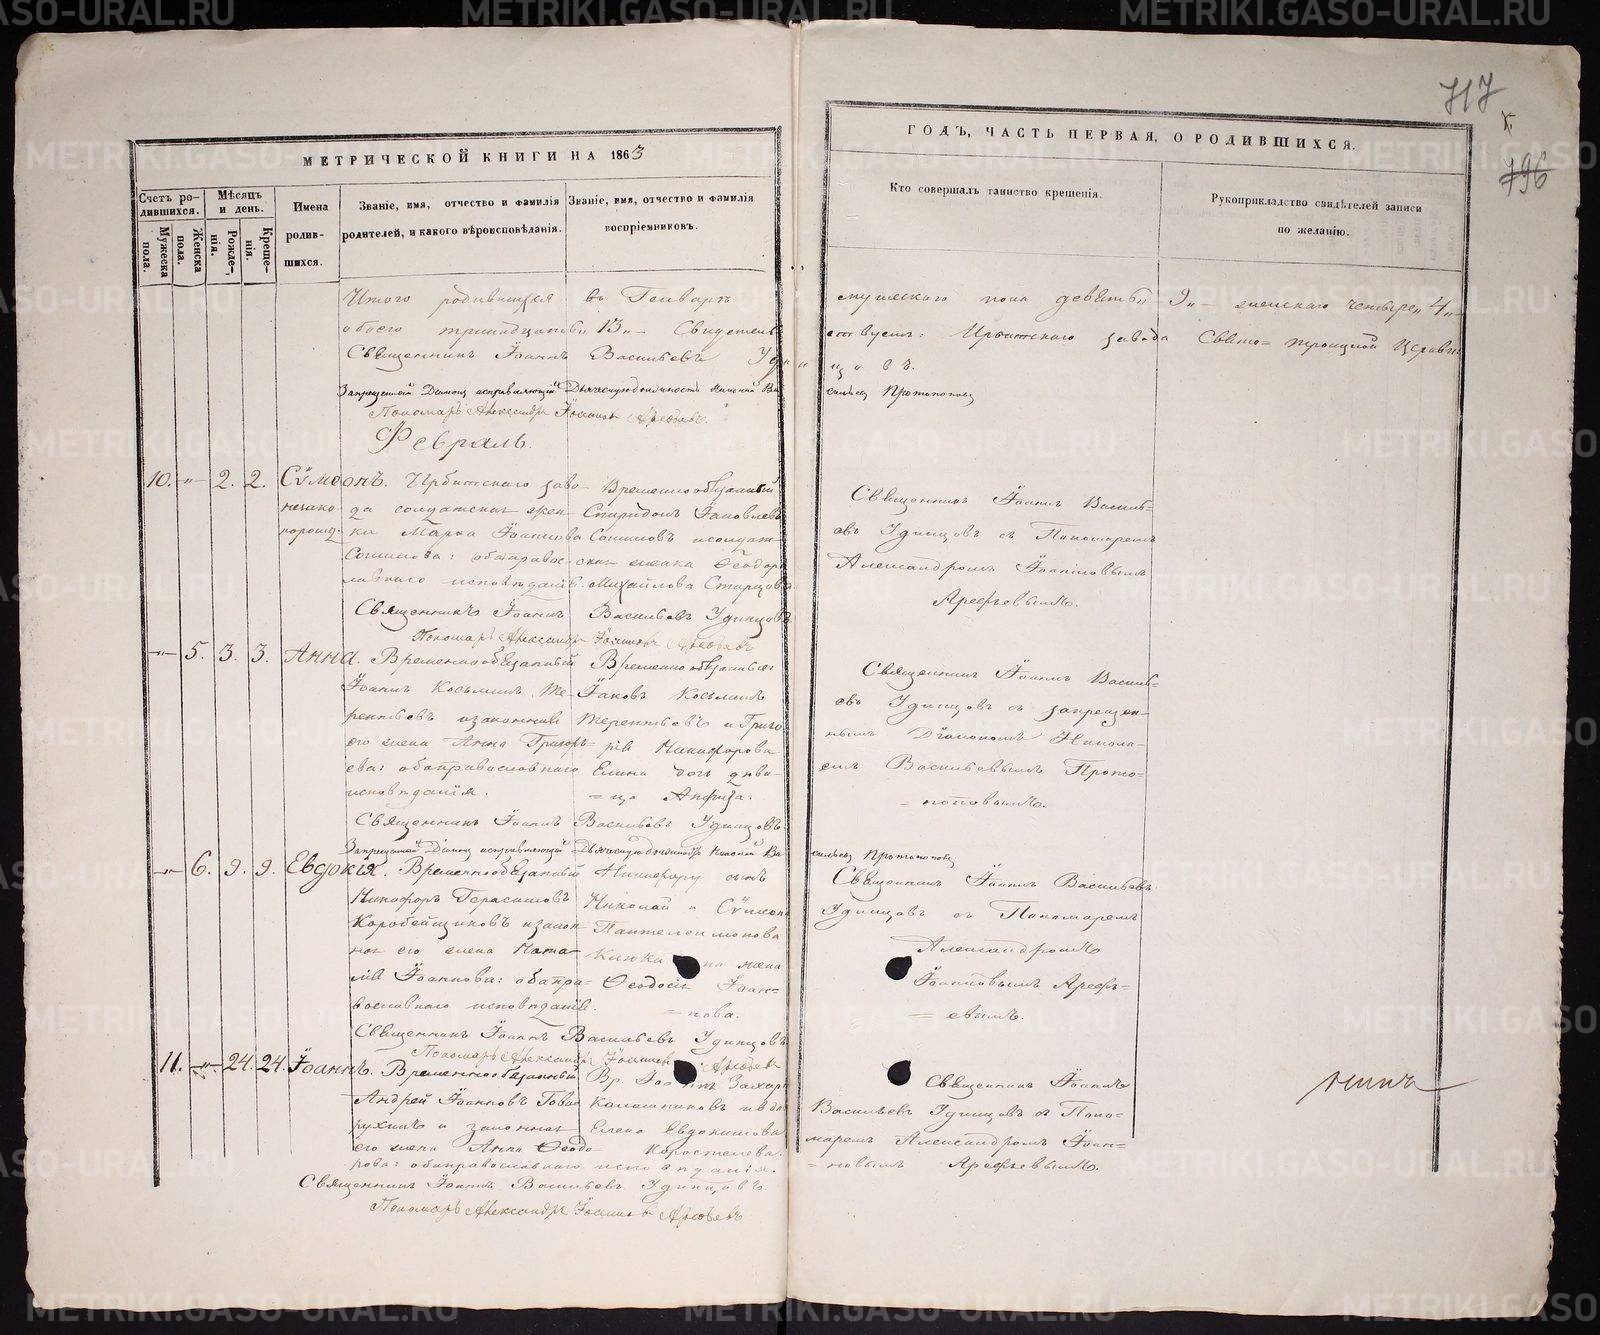 717
796
МЕТРИЧЕСКОЙ КНИГИ НА 1863
ГОДЪ, ЧАСТЬ ПЕРВАЯ, О РОДИВШИХСЯ.
Счетъ родившихся.
Мужеска пола.
Женска пола.
Мѣсяцъ и день.
Рожденія.
Крещенія.
Имена родившихся.
Званіе, имя, отчество и фамилія
родителей, и какого вѣроисповѣданія.
Званіе, имя, отчество и фамилія
воспріемниковъ.
Кто совершалъ таинство крещенія.
Рукоприкладство свидѣтелей записи
по желанію.
Итого родившихся въ Генварѣ мужескаго пола девять „9„ женскаго четыре „4„
обоего тринадцать „13„ Свидетельствуемъ: Ирбитскаго завода Свято-Троицкой Церкви
Священникъ Іоаннъ Васильевъ Удинцовъ.
Запрещенный Діаконъ исправляющій Дьяческую должность Николай Васильевъ Протопоповъ
Пономарь Александръ Іоанновъ Арефьевъ.
Февраль.
10. -„- 2. 2. Сѵмеонъ.
незаконорожд.
Ирбитскаго заво-
да солдатская жен-
ка Марѳа Іоаннова
Сошнова: обаправос-
лавнаго исповѣданія.
Временно обязанный
Спиридонъ Іаковлевъ
Сошновъ и солдат-
ская женка Ѳеодора
Михайлова Старцова
Священникъ Іоаннъ Василь-
евъ Удинцовъ съ Пономаремъ
Александромъ Іоанновымъ
Арефьевымъ.
Священникъ Іоаннъ Васильевъ Удинцовъ.
Пономарь Александръ Іоанновъ Арефьевъ
-„- 5. 3. 3. Анна.
Временно обязанный
Іоаннъ Косьминъ Те-
рентьевъ и законная
его жена Анна Григорь-
ева: обаправославнаго
исповѣданія.
Временно обязанные:
Іаковъ Косьминъ
Терентьевъ и Григо-
рія Никифорова
Елина дочь дѣви-
= ца Анфиза.
Священникъ Іоаннъ Василь-
евъ Удинцовъ съ запрещен-
нымъ Діакономъ Никола-
емъ Васильевымъ Прото-
= поповымъ.
Священникъ Іоаннъ Васильевъ Удинцовъ.
Запрещенный Діаконъ исправляющій Дьяческую должность Николай Васильевъ Протопоповъ
-„- 6. 9. 9. Евдокія.
Временнообязанный
Никифоръ Герасимовъ
Коробейщиковъ и закон-
ная его жена Ната-
лія Іоаннова: обапра-
вославнаго исповѣданія.
Никифору сынъ
Николай и Сѵмеона
Пантелеимонова
жена
Ѳеодосія Іоан-
= нова.
Священникъ Іоаннъ Васильевъ
Удинцовъ съ Пономаремъ
Александромъ
Іоанновымъ Арефь-
= евымъ.
Священникъ Іоаннъ Васильевъ Удинцовъ
Пономарь Александръ Іоанновъ Арефьевъ
11. -„- 24. 24. Іоаннъ.
Временнообязанный
Андрей Іоанновъ
и законная
его жена Анна Ѳеодо-
рова: обаправославнаго исповѣданія.
Вр. Захар
Калашниковъ
Елена Евдокимова
Коростелева.
Священникъ Іоаннъ
Васильевъ Удинцовъ съ Поно-
маремъ Александромъ Іоан-
= новымъ Арефьевымъ.
Священникъ Іоаннъ Васильевъ Удинцовъ.
Пономарь Александръ Іоанновъ Арефьевъ